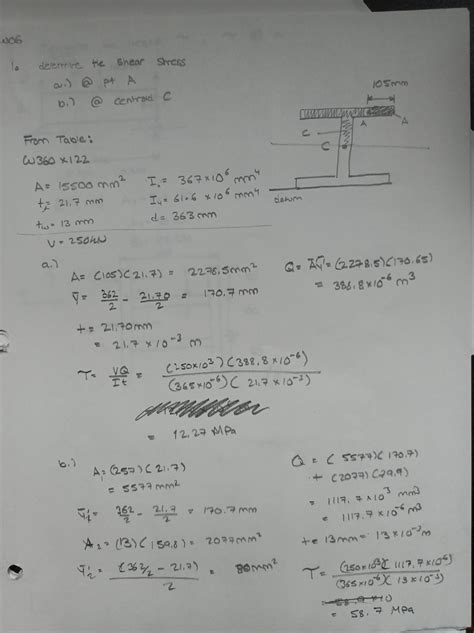 1. determine the shear stress
a.) @ pt A
b.) @ centroid C
105mm
A
A
C
C
datum
From Table:
W360 x 122
A = 15500 mm²
I = 367 x 10⁶ mm⁴
t = 21.7 mm
I = 61.6 x 10⁶ mm⁴
tw = 13 mm
d = 363 mm
V = 250kN
a.)
A = (105)(21.7) = 2278.5mm²
ȳ = 362/2 - 21.70/2 = 170.7 mm
t = 21.70mm
= 21.7 x 10⁻³ m
Q = Aȳ = (2278.5)(170.65)
= 388.8x10⁻⁶ m³
τ = VQ/It = (250x10³)(388.8x10⁻⁶)/(365x10⁻⁶)(21.7x10⁻³)
= 12.27 MPa
b.)
A₁ = (257)(21.7)
= 5577mm²
= 362/2 - 21.7/2 = 170.7mm
A₂ = (13)(159.8) = 2077mm²
ȳ₂ = (362/2 - 21.7)/2 = 80mm²
Q = (5577)(170.7)
+ (2077)(79.9)
= 1117.7 x 10³ mm³
= 1117.7 x 10⁻⁶ m³
t = 13mm = 13x10⁻³m
τ = (250x10³)(1117.7x10⁻⁶)/(365x10⁻⁶)(13x10⁻³)
= 58.7 MPa